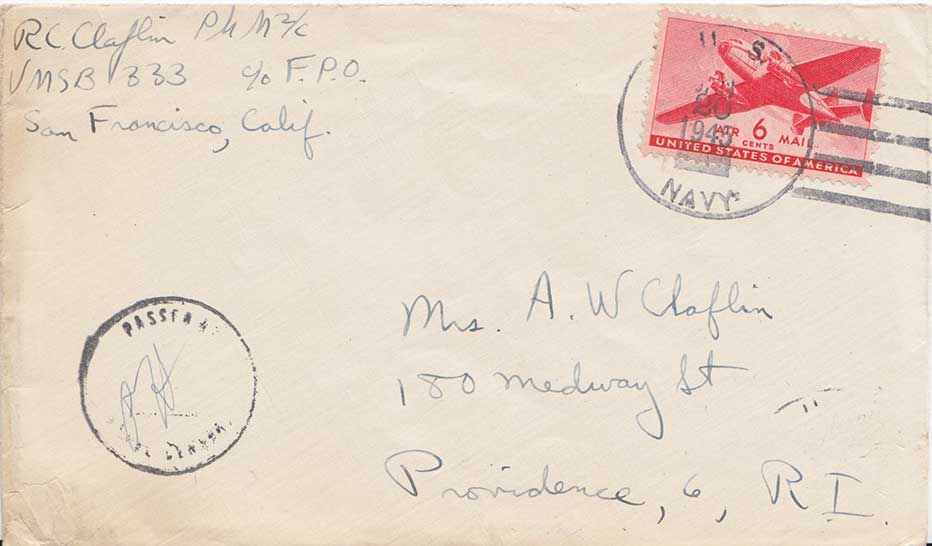 R.C. Claflin PhM2/c
VMSB 333 c/o F.P.O.
San Francisco, Calif.
U. S.
20
1945
NAVY
AIR 6 MAIL
CENTS
UNITED STATES OF AMERICA
PASSED
Mrs. A. W Claflin
180 Medway St
Providence, 6, R I.